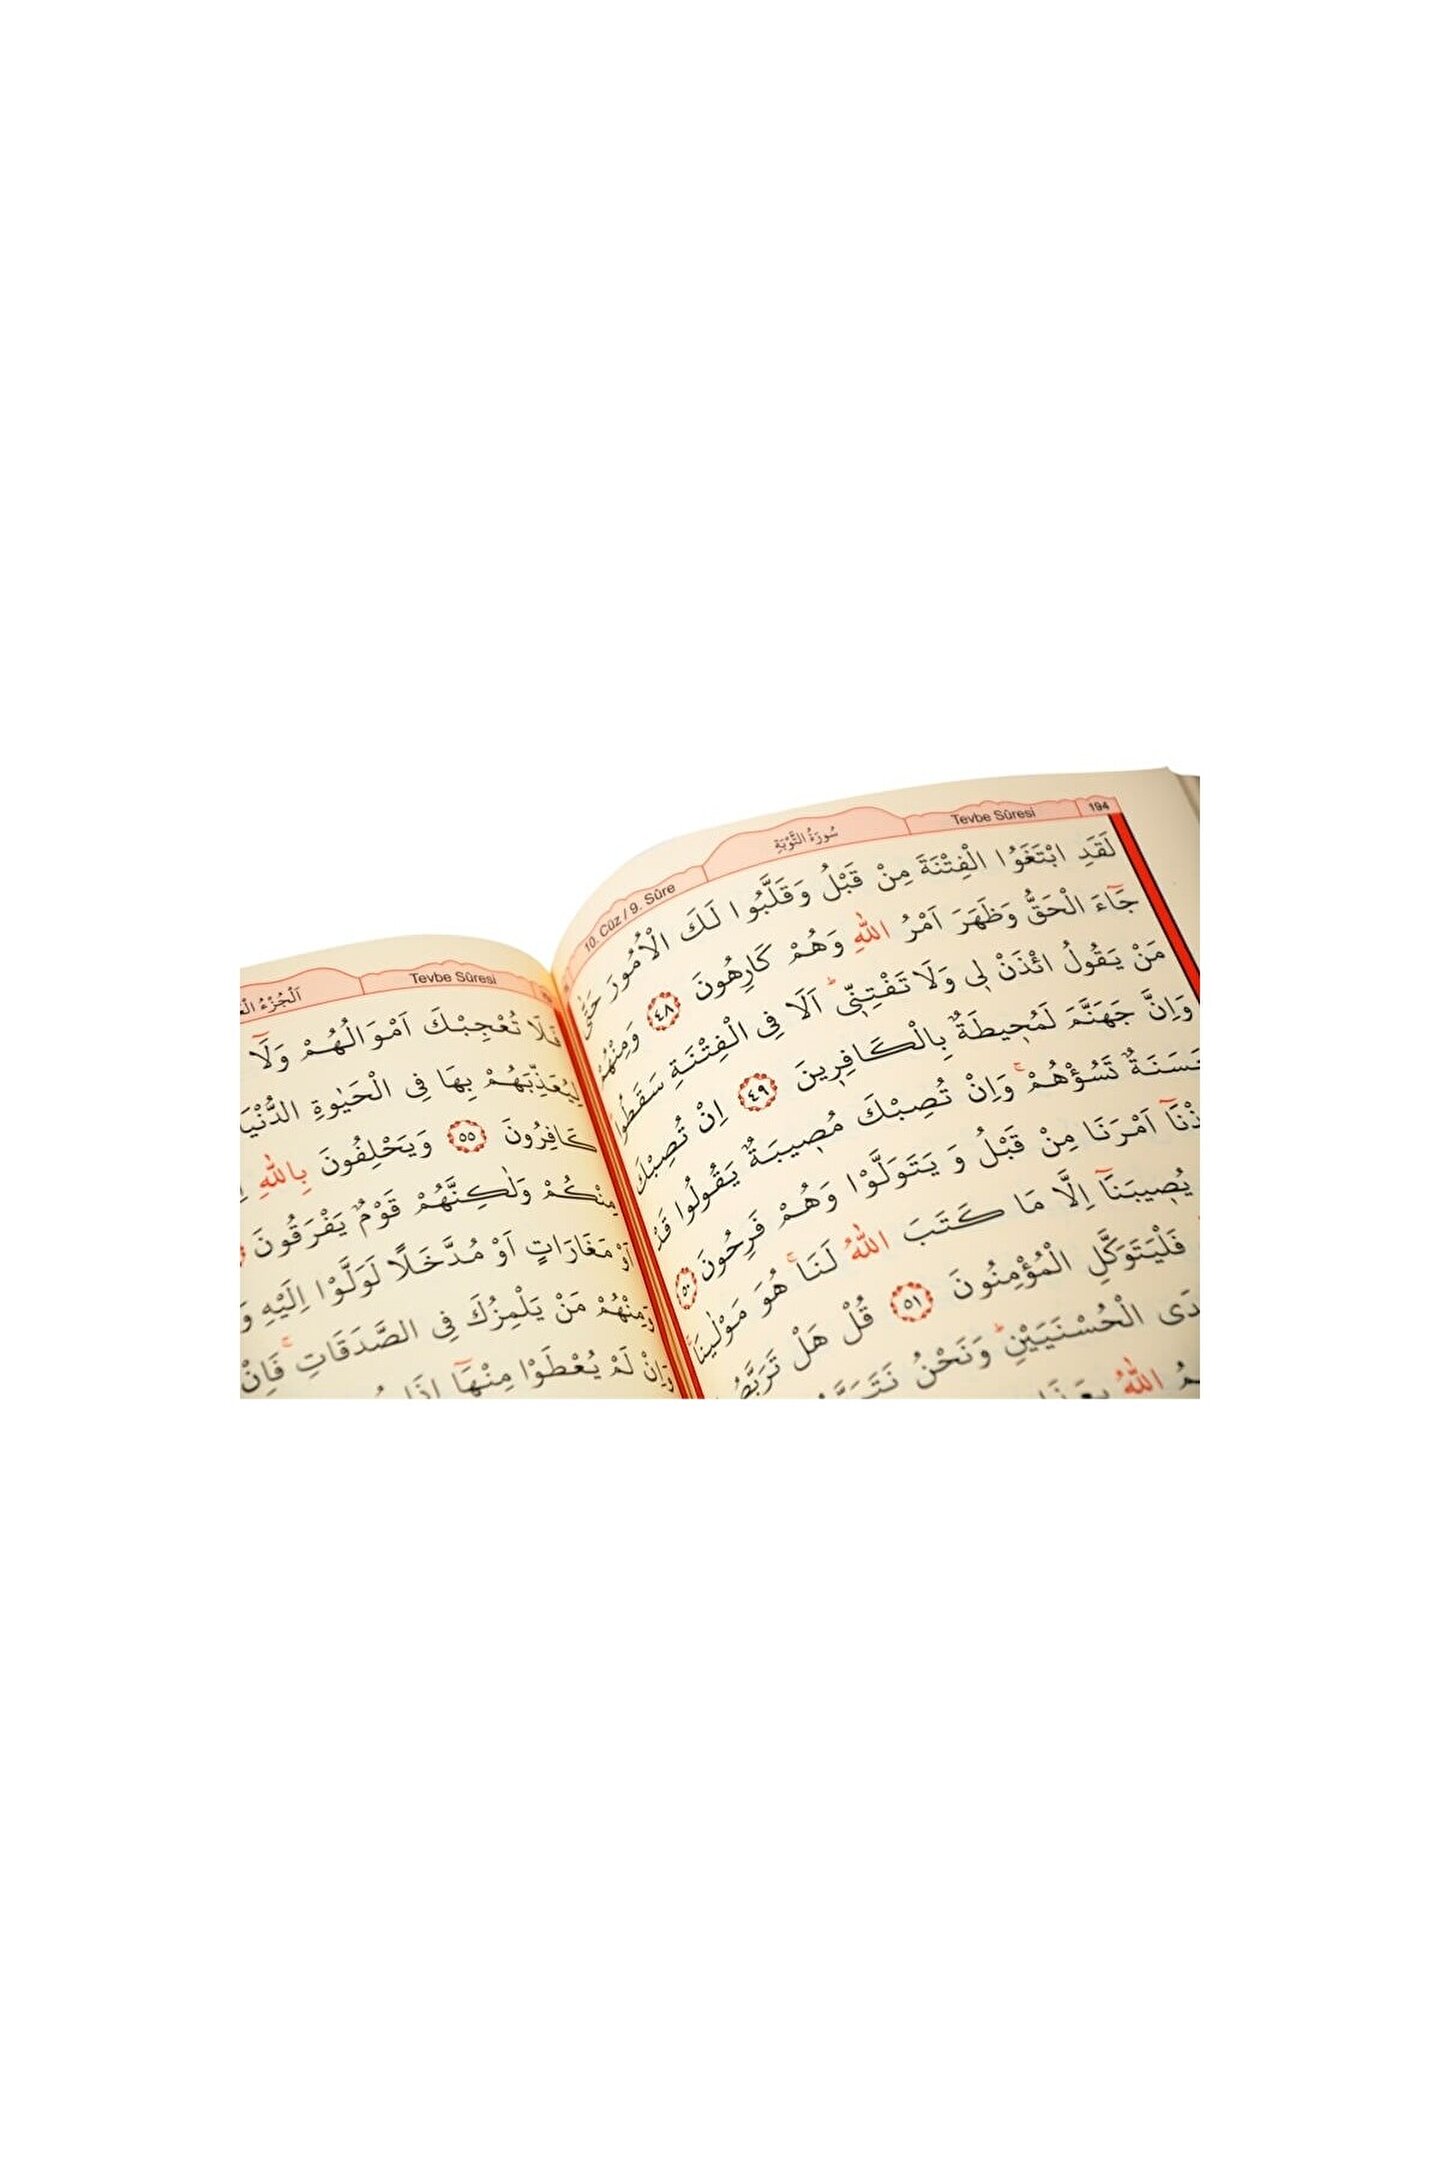 194 Tevbe Sûresi سُورَةُ التَّوْبَةِ 10. Cüz / 9. Sûre
لَقَدِ ابْتَغَوُا الْفِتْنَةَ مِنْ قَبْلُ وَقَلَّبُوا لَكَ الْاُمُورَ حَتّٰى
جَٓاءَ الْحَقُّ وَظَهَرَ اَمْرُ اللّٰهِ وَهُمْ كَارِهُونَ ٤٨ وَمِنْهُمْ
مَنْ يَقُولُ ائْذَنْ ل۪ي وَلَا تَفْتِنّ۪يۜ اَلَا فِي الْفِتْنَةِ سَقَطُواۜ
وَاِنَّ جَهَنَّمَ لَمُح۪يطَةٌ بِالْكَافِر۪ينَ ٤٩ اِنْ تُصِبْكَ
حَسَنَةٌ تَسُؤْهُمْۚ وَاِنْ تُصِبْكَ مُص۪يبَةٌ يَقُولُوا قَدْ
اَمْرَنَا مِنْ قَبْلُ وَيَتَوَلَّوْا وَهُمْ فَرِحُونَ ٥٠
يُص۪يبَنَٓا اِلَّا مَا كَتَبَ اللّٰهُ لَنَاۚ هُوَ مَوْلٰينَاۚ
فَلْيَتَوَكَّلِ الْمُؤْمِنُونَ ٥١ قُلْ هَلْ
الْحُسْنَيَيْنِۜ وَنَحْنُ
اللّٰهُ
Tevbe Sûresi
فَلَا تُعْجِبْكَ اَمْوَالُهُمْ وَلَٓا
لِيُعَذِّبَهُمْ بِهَا فِي الْحَيٰوةِ الدُّنْيَا
كَافِرُونَ ٥٥ وَيَحْلِفُونَ بِاللّٰهِ
مِنْكُمْ وَلٰكِنَّهُمْ قَوْمٌ يَفْرَقُونَ
اَوْ مَغَارَاتٍ اَوْ مُدَّخَلًا لَوَلَّوْا اِلَيْهِ
وَمِنْهُمْ مَنْ يَلْمِزُكَ فِي الصَّدَقَاتِۚ فَاِنْ
وَاِنْ لَمْ يُعْطَوْا مِنْهَٓا اِذَا